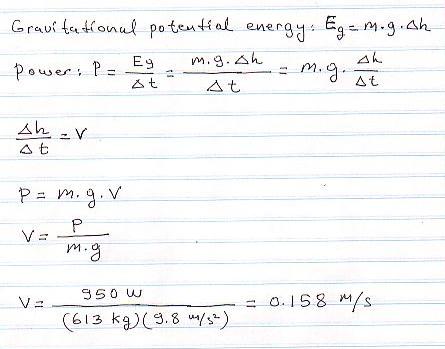 Gravitational potential energy: Eg = m.g.Δh
Power: P = Eg/Δt = m.g.Δh/Δt = m.g. Δh/Δt
Δh/Δt = V
P = m.g.V
V = P/m.g
V = 950 W/(613 kg)(9.8 m/s²) = 0.158 m/s